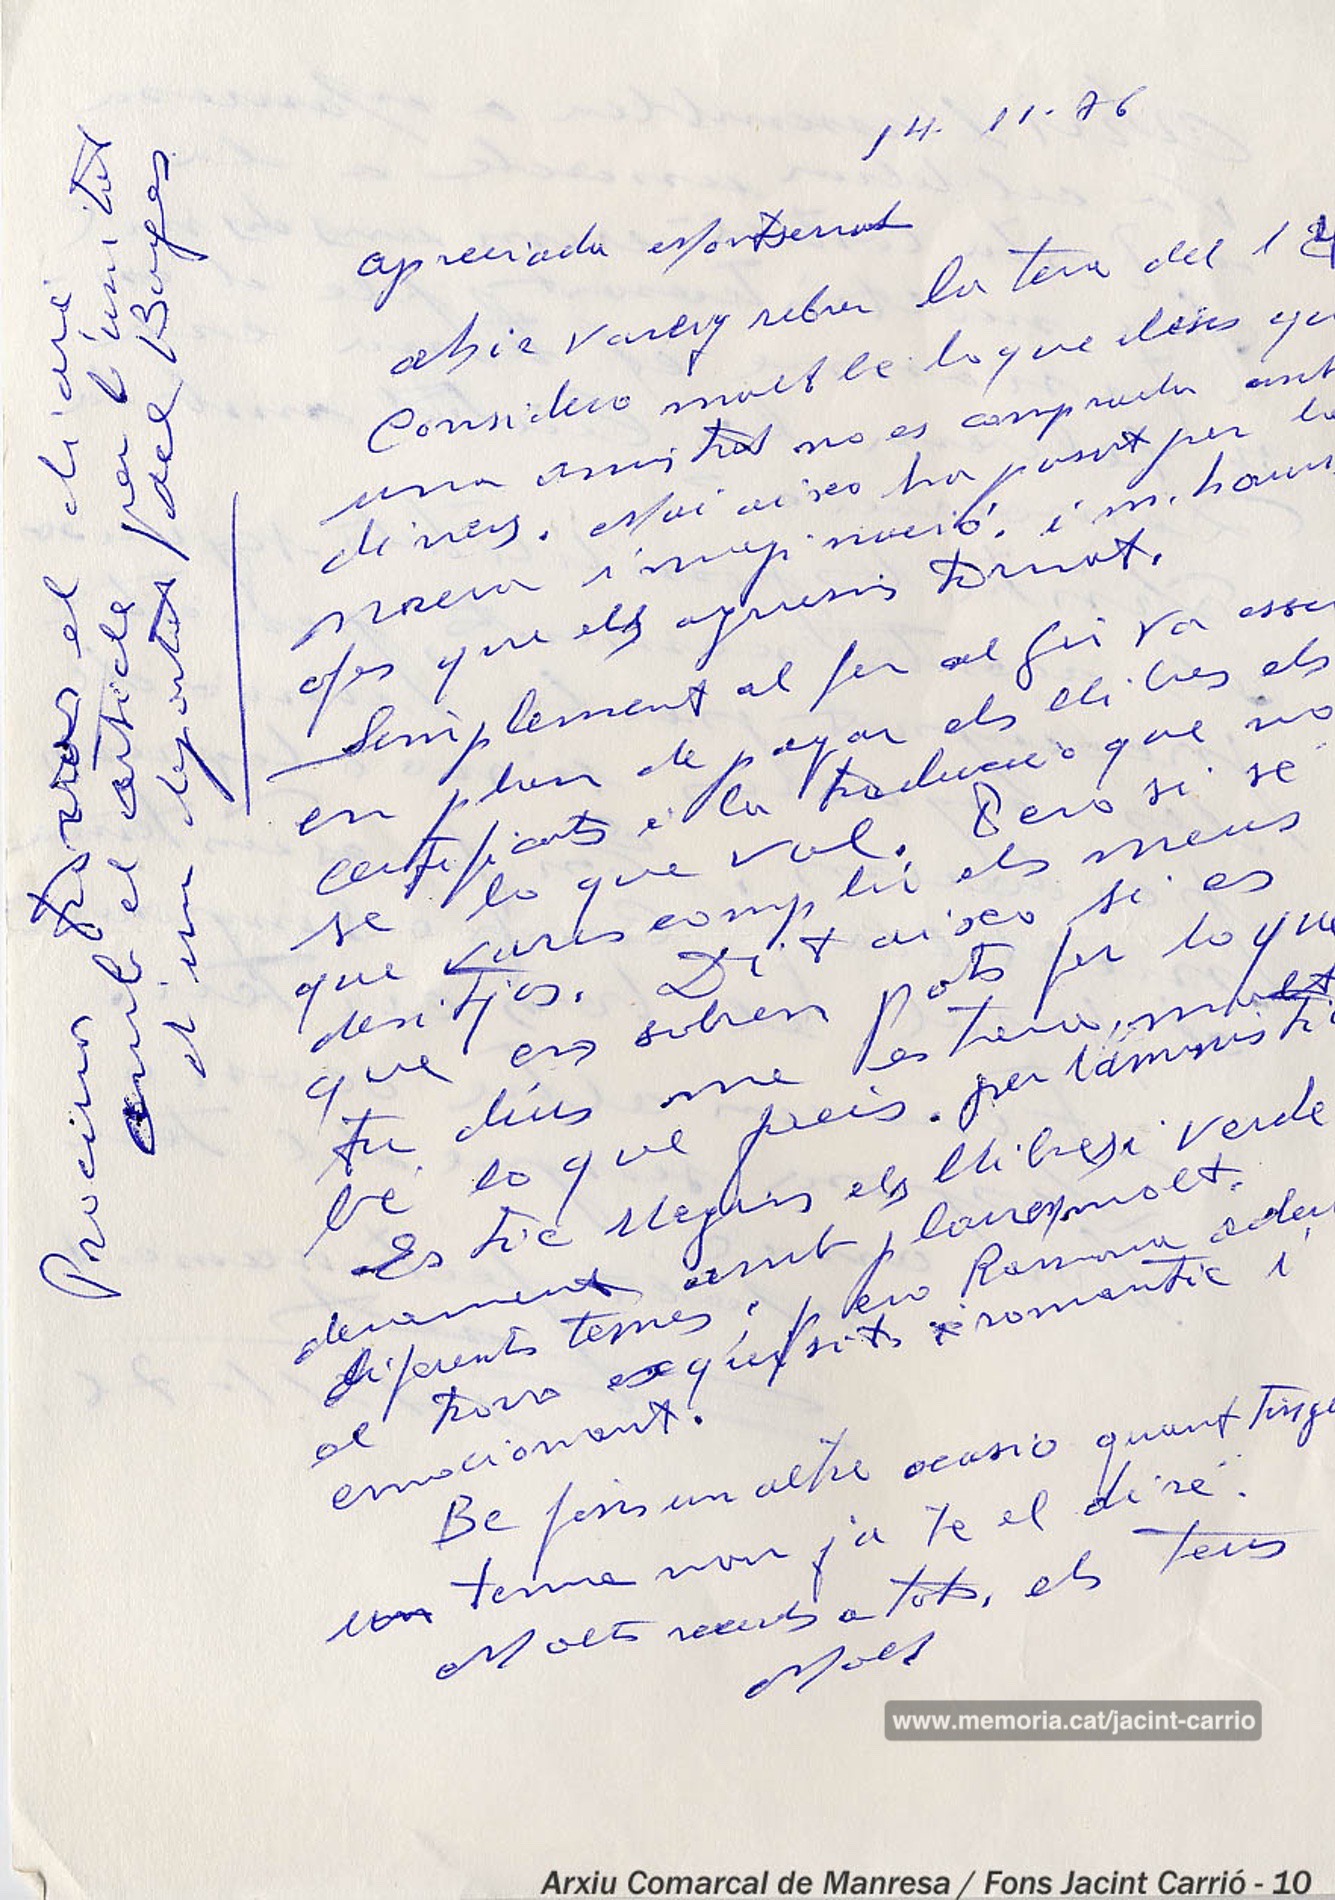 14-11-76
apreciada Montserrat
ahir vareig rebre la teva del 1
Considero molt be lo que deies que
una amistat no es comprada amb
diners. Mai aixo ha pasat per la
meva imaginació. i m. hauri
ofes que els aguesis tornat.
Simplement al fer al giri va esser
en plan de pagar els llibres els
certificats i la traducció que no
se lo que val. Pero si sé
que vares complir els meus
desitjos. Dit aixo si es
que ens sobren pots fer lo que
tu dius me es teva, molt
be lo que feis. per l'amnistia
Es tic llegins els llibres i verde
derament amb plaures molt.
diferents temes, pero Ramona adeu
al trovo exquisits i romantic i
emocionant.
Be fins un altre ocasio quant tinge
un tema nou ja te el diré.
Molts records a tots, els teus
Moll
Procures trovas el diari
amb el article per l'amnistia
d'un deportat del Bages
www.memoria.cat/jacint-carrio
Arxiu Comarcal de Manresa / Fons Jacint Carrió - 10